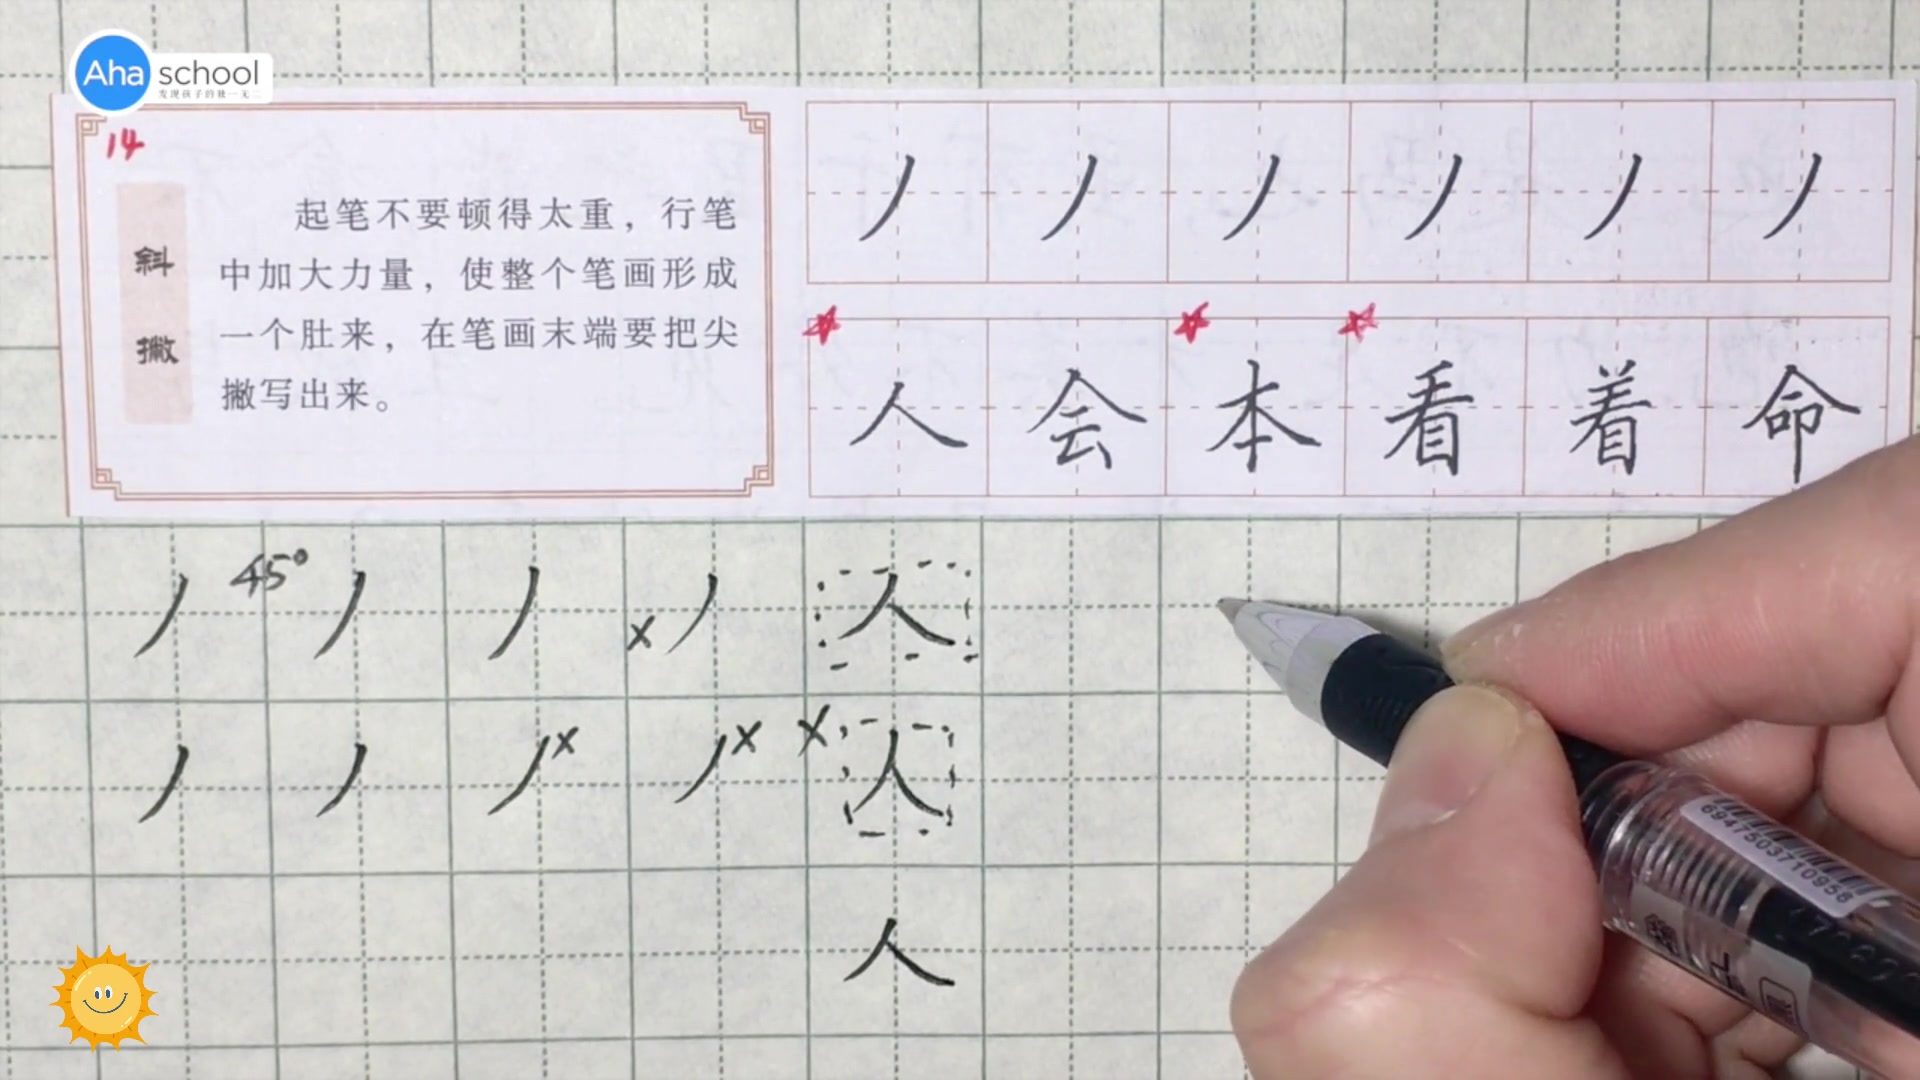 Aha school
发现孩子的独一无二
14
斜撇
起笔不要顿得太重，行笔
中加大力量，使整个笔画形成
一个肚来，在笔画末端要把尖
撇写出来。
丿 丿 丿 丿 丿 丿
人 会 本 看 着 命
丿 45° 丿 丿 x 丿 人
丿 丿 丿 x 丿 x x 人
人
6947503710958